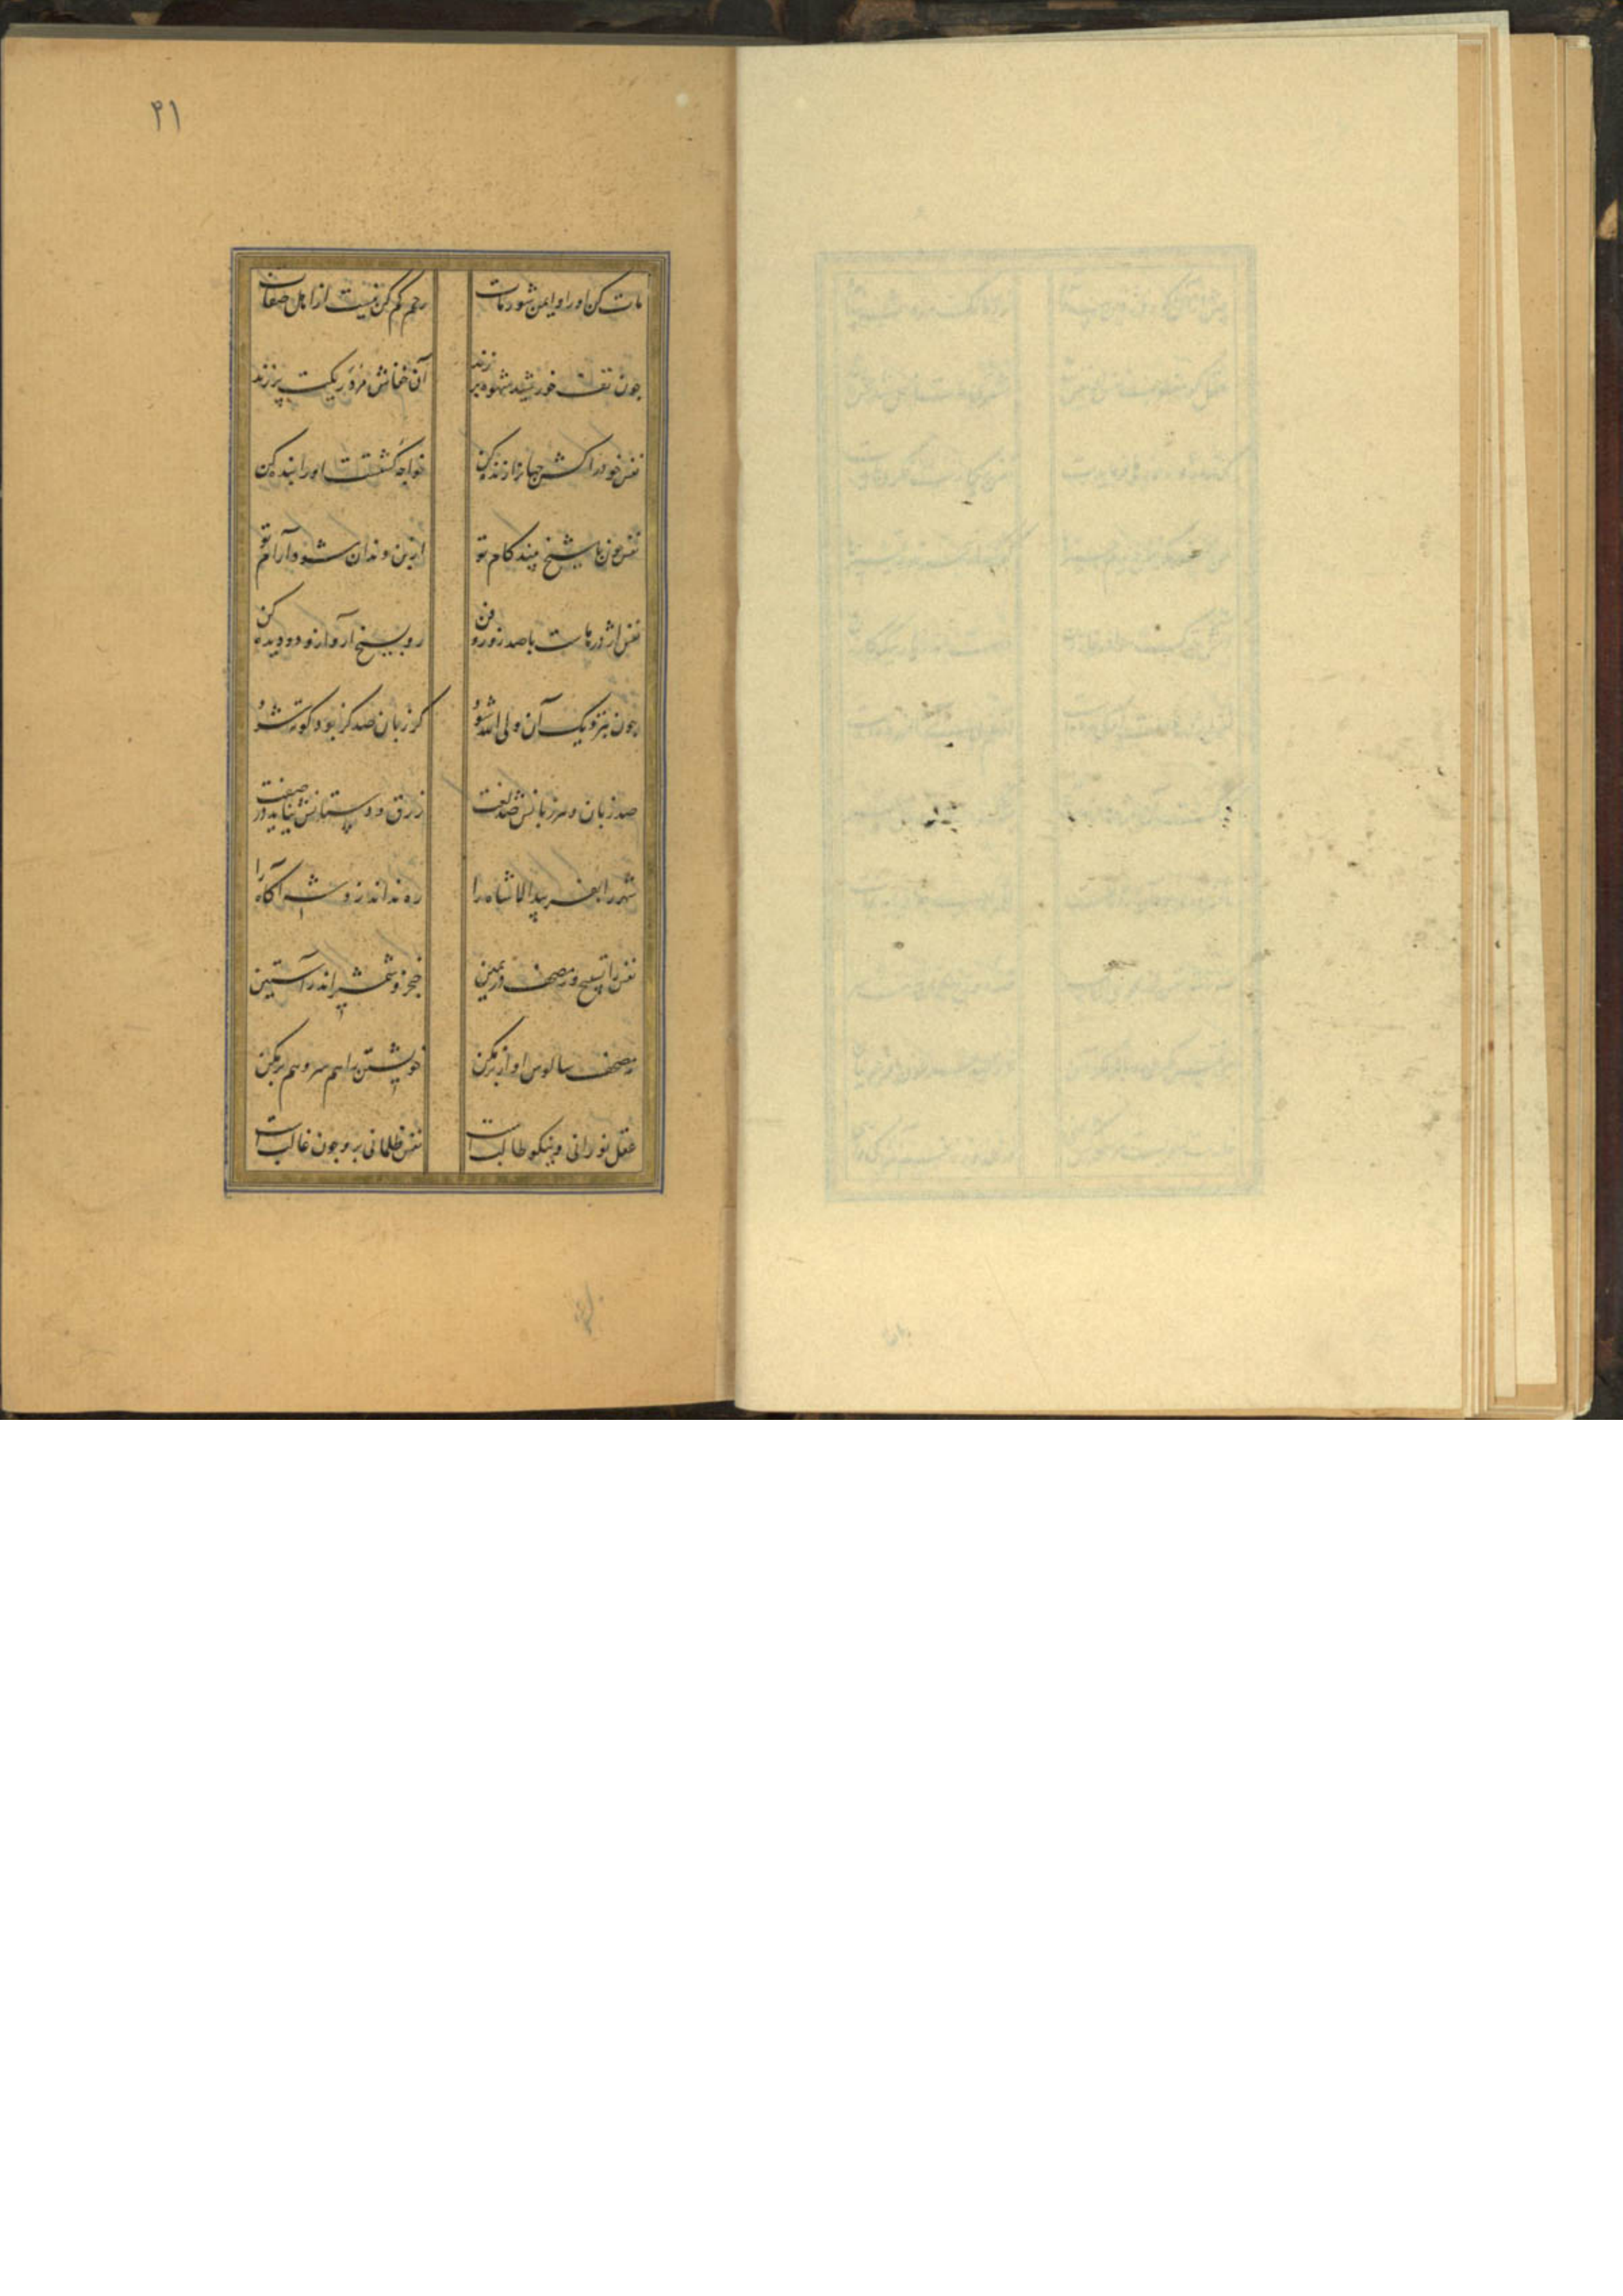 ۴۱
مات کن او را و ایمن شو ز مات
رحم کم کن نیست از اهل صفات
چون تف خورشید شهوه بر زند
آن خفاش مرده ریکت پر زند
نفس خود را کش جهانرا زنده کن
خواجه کشتست او را بنده کن
نفس چون با شیخ بیند کام تو
از بن دندان شود رام تو
نفس اژدرهاست با صد زور و فن
رو بشیخ آر و ازو دیده کن
چون بنزدیک آن ولی الله شود
کر زبان صد کز بود کوته شود
صد زبان و هر زبانش صد لغت
زرق و دستانش نیاید در صفت
شهر را بفریبد الا شاه را
ره نداند زد شه آکاه را
نفس را تسبیح و مصحف در یمین
خنجر و شمشیر اندر آستین
مصحف سالوس او مکن
خویشتن هم سر و هم بر مکن
عقل نورانی و نیکو طالب است
نفس ظلمانی برو چون غالب است